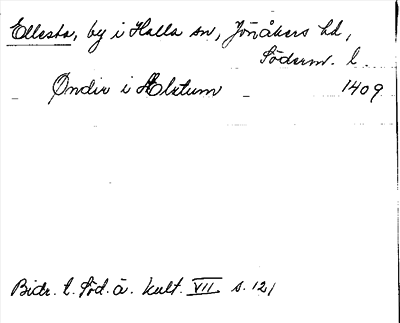 Ellesta, by i Halla sn, Jönåkers hd,
Söderm. l.
Øndir i Ælestum 1409
Bidr. t. Söd. ä. kult. VII s. 121